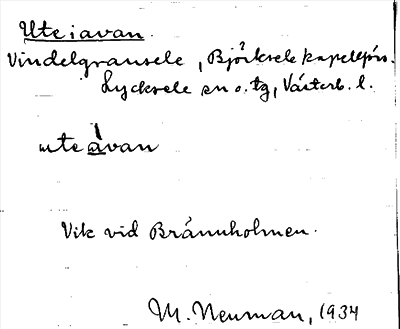 Uteiavan.
Vindelgransele, Björksele kapellförs.
Lycksele sn o. tg, Västerb. l.
uteàvan
Vik vid Brännholmen.
M. Neuman, 1934